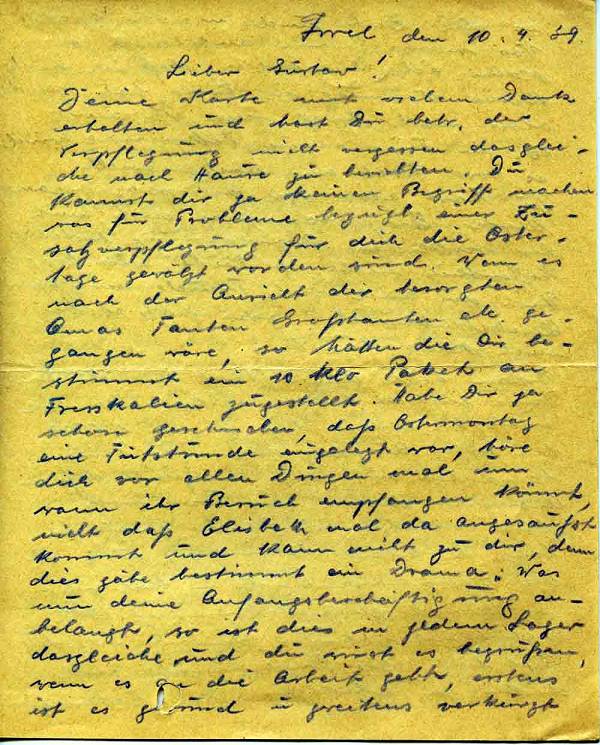 den 10. 4. 39.
Lieber Gustav!
Deine Karte mit vielem Dank
erhalten und hast Du betr. der
Verpflegung nicht vergessen dasglei-
che nach Hause zu berichten. Du
kannst dir ja keinen Begriff machen
was für Probleme bezügl. einer Zu-
satzverpflegung für dich die Oster-
tage gewälzt worden sind. Wenn es
nach der Ansicht der besorgten
Omas Tanten Grosstanten etc. ge-
gangen wäre, so hätten die Dir be-
stimmt ein 10 Klo Paket an
Fresskalien zugestellt. Habe Dir ja
schon geschrieben, daß Ostermontag
eine eingelegt war, höre
dich vor allen Dingen mal um
wann ihr Besuch empfangen könnt,
nicht daß Elisbeth mal da angesaust
kommt und kann nicht zu dir, denn
dies gäbe bestimmt ein Drama. Was
nun deine Anfangsbeschäftigung an-
belangt, so ist dies in jedem Lager
dasgleiche und du wirst es begrüßen,
wenn es an die Arbeit geht, erstens
ist es gesund u zweitens verkürzt